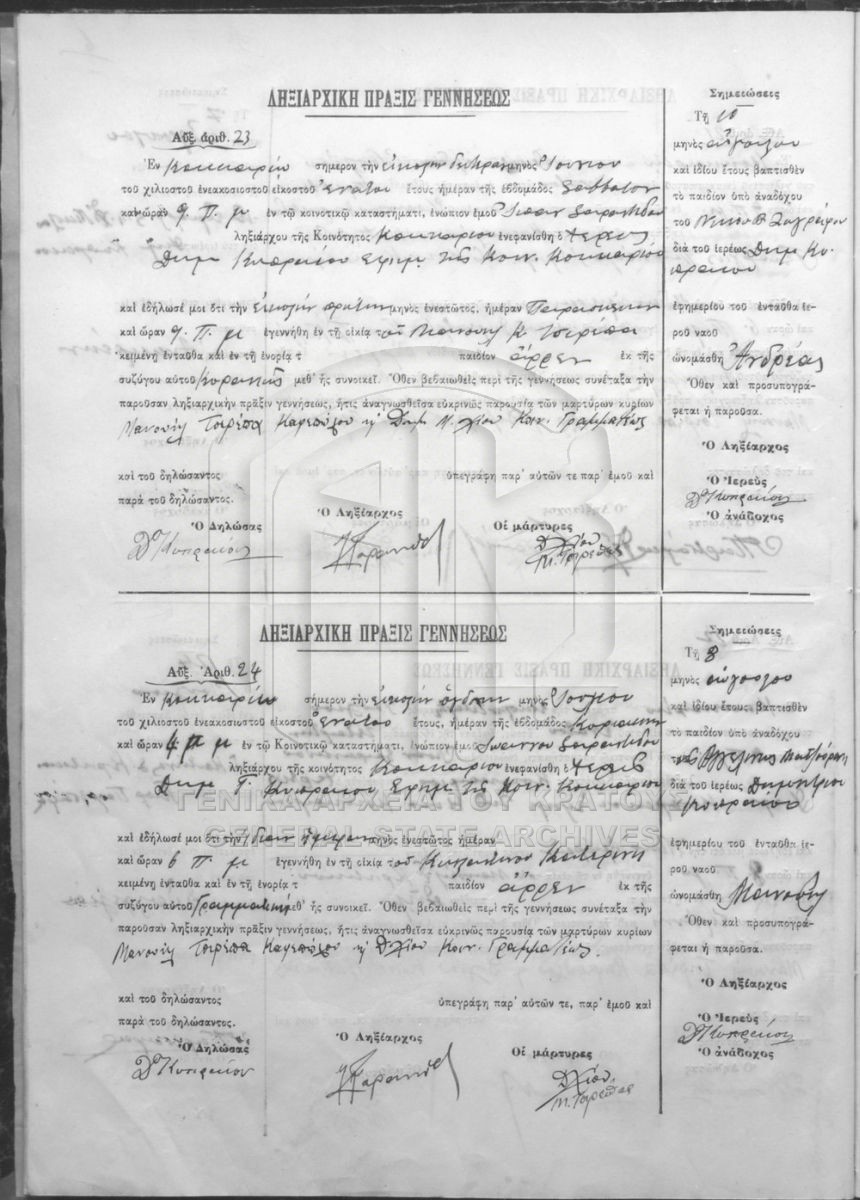 ΛΗΞΙΑΡΧΙΚΗ ΠΡΑΞΙΣ ΓΕΝΝΗΣΕΩΣ
Αὔξ. ἀριθ. 23
Ἐν Κοκκαρίῳ σήμερον τὴν εἰκοστὴν δευτέραν μηνὸς Ἰουνίου
τοῦ χιλιοστοῦ ἐνεακοσιοστοῦ εἰκοστοῦ ἐνάτου ἔτους ἡμέραν τῆς ἑβδομάδος Σάββατον
καὶ ὥραν 9 π. μ ἐν τῷ κοινοτικῷ καταστήματι, ἐνώπιον ἐμοῦ
ληξιάρχου τῆς Κοινότητος Κοκκαρίου ἐνεφανίσθη ὁ ἱερεὺς
Δημ Κυπραίου Ἐφημ τῆς Κοιν. Κοκκαρίου
καὶ ἐδήλωσέ μοι ὅτι τὴν εἰκοστὴν πρώτην μηνὸς ἐνεστῶτος, ἡμέραν Παρασκευὴν
καὶ ὥραν 9 π. μ ἐγεννήθη ἐν τῇ οἰκίᾳ τοῦ Μανουὴλ Κ. Τσιρέπα
κειμένῃ ἐνταῦθα καὶ ἐν τῇ ἐνορίᾳ τ παιδίον ἄρρεν ἐκ τῆς
συζύγου αὐτοῦ Κυριακῆς μεθ' ἧς συνοικεῖ. Ὅθεν βεβαιωθεὶς περὶ τῆς γεννήσεως συνέταξα τὴν
παροῦσαν ληξιαρχικὴν πρᾶξιν γεννήσεως, ἥτις ἀναγνωσθεῖσα εὐκρινῶς παρουσίᾳ τῶν μαρτύρων κυρίων
Μανουὴλ Τσιρέπα Καφεπώλου κ Δημ Χίου Κοιν. Γραμματέως
καὶ τοῦ δηλώσαντος ὑπεγράφη παρ' αὐτῶν τε παρ' ἐμοῦ καὶ
παρὰ τοῦ δηλώσαντος.
Ὁ Δηλώσας Ὁ Ληξίαρχος Οἱ μάρτυρες
Δ Κυπραίου
Δ Χίου
Μ. Τσιρέπας
Σημειώσεις
Τῇ 10
μηνὸς αὐγούστου
καὶ ἰδίου ἔτους βαπτισθὲν
τὸ παιδίον ὑπὸ ἀναδόχου
τοῦ Νικ
διὰ τοῦ ἱερέως Δημ Κυ
πραίου
ἐφημερίου τοῦ ἐνταῦθα ἱε-
ροῦ ναοῦ
ὠνομάσθη Ἀνδρέας
Ὅθεν καὶ προσυπογρά-
φεται ἡ παροῦσα.
Ὁ Ληξίαρχος
Ὁ Ἱερεὺς
Δ Κυπραίου
Ὁ ἀνάδοχος
ΛΗΞΙΑΡΧΙΚΗ ΠΡΑΞΙΣ ΓΕΝΝΗΣΕΩΣ
Αὔξ. Ἀριθ. 24
Ἐν Κοκκαρίῳ σήμερον τὴν εἰκοστὴν ὀγδόην μηνὸς
τοῦ χιλιοστοῦ ἐνεακοσιοστοῦ εἰκοστοῦ ἐνάτου ἔτους, ἡμέραν τῆς ἑβδομάδος Κυριακὴν
καὶ ὥραν 4 μ μ ἐν τῷ Κοινοτικῷ καταστήματι, ἐνώπιον ἐμοῦ Ἰωάννου
ληξιάρχου τῆς κοινότητος Κοκκαρίου ἐνεφανίσθη ὁ ἱερεὺς
Δημ Γ. Κυπραίου Ἐφημ τῆς Κοιν. Κοκκαρίου
ΓΕΝΙΚΑ ΑΡΧΕΙΑ ΤΟΥ ΚΡΑΤΟΥΣ
GENERAL STATE ARCHIVES
καὶ ἐδήλωσέ μοι ὅτι τὴν ἰδίαν ἡμέραν μηνὸς ἐνεστῶτος ἡμέραν
καὶ ὥραν 6 π. μ ἐγεννήθη ἐν τῇ οἰκίᾳ τοῦ Κωνσταντίνου
κειμένῃ ἐνταῦθα καὶ ἐν τῇ ἐνορίᾳ τ παιδίον ἄρρεν ἐκ τῆς
συζύγου αὐτοῦ Γραμματικῆς μεθ' ἧς συνοικεῖ. Ὅθεν βεβαιωθεὶς περὶ τῆς γεννήσεως συνέταξα τὴν
παροῦσαν ληξιαρχικὴν πρᾶξιν γεννήσεως, ἥτις ἀναγνωσθεῖσα εὐκρινῶς παρουσίᾳ τῶν μαρτύρων κυρίων
Μανουὴλ Τσιρέπα Καφεπώλου κ Δ Χίου Κοιν. Γραμματέως.
καὶ τοῦ δηλώσαντος ὑπεγράφη παρ' αὐτῶν τε, παρ' ἐμοῦ καὶ
παρὰ τοῦ δηλώσαντος.
Ὁ Δηλώσας Ὁ Ληξίαρχος Οἱ μάρτυρες
Δ Κυπραίου
Δ Χίου
Μ. Τσιρέπας
Σημειώσεις
Τῇ 8
μηνὸς αὐγούστου
καὶ ἰδίου ἔτους βαπτισθὲν
τὸ παιδίον ὑπὸ ἀναδόχου
διὰ τοῦ ἱερέως Δημητρίου
Κυπραίου
ἐφημερίου τοῦ ἐνταῦθα ἱε-
ροῦ ναοῦ
ὠνομάσθη Μανουὴλ
Ὅθεν καὶ προσυπογρά-
φεται ἡ παροῦσα.
Ὁ Ληξίαρχος
Ὁ Ἱερεὺς
Δ Κυπραίου
Ὁ ἀνάδοχος